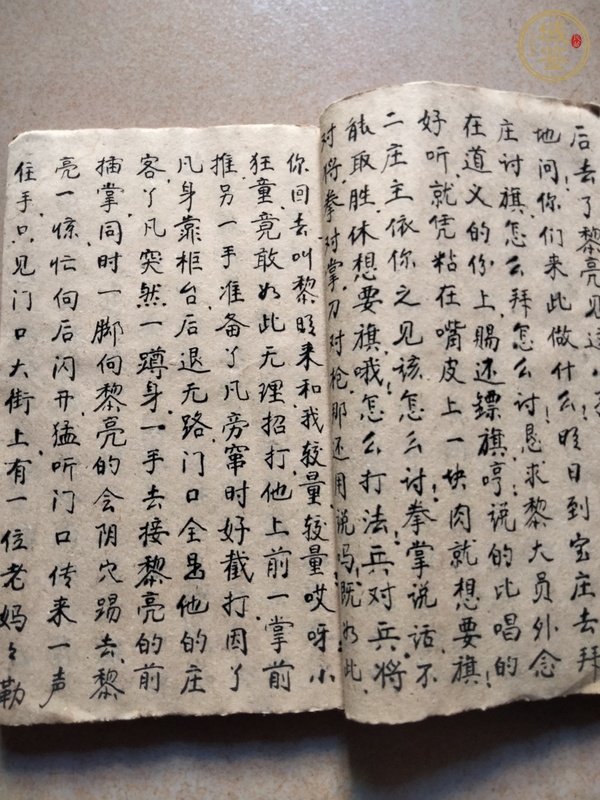 后去了黎亮见
地问,你们来此做什么,明日到宝庄去拜
庄讨旗,怎么拜怎么讨,恳求黎大员外念
在道义的份上,赐还镖旗,哼,说的比唱的
好听,就凭粘在嘴皮上一块肉就想要旗,
二庄主依你之见该怎么讨,拳掌说话,不
能取胜,休想要旗,哦,怎么打法,兵对兵,将
对将,拳对掌,刀对枪,那还用说吗,既如此,
你回去叫黎明来和我较量较量,哎呀,小
狂童竟敢如此无理,招打,他上前一掌,前
推,另一手准备了凡旁窜时好截打,因了
凡身靠柜台,后退无路,门口全是他的庄
客,了凡突然一蹲身,一手去接黎亮的前
插掌,同时一脚向黎亮的会阴穴踢去,黎
亮一惊,忙向后闪开,猛听门口传来一声
住手,只见门口大街上有一位老妈々勒